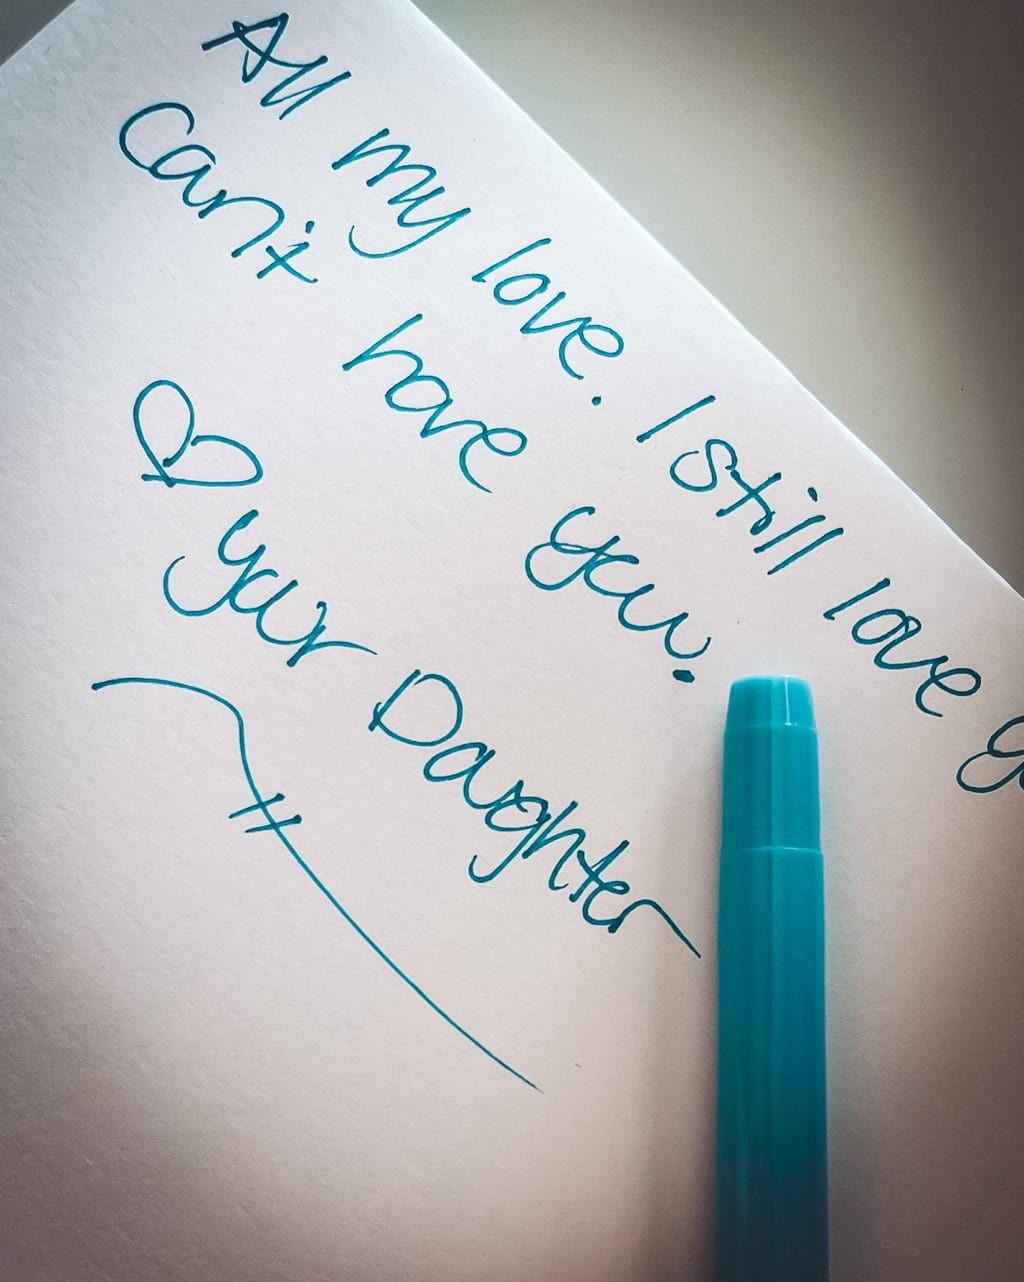 All my love. I still love
Can't have you.
♡ your Daughter